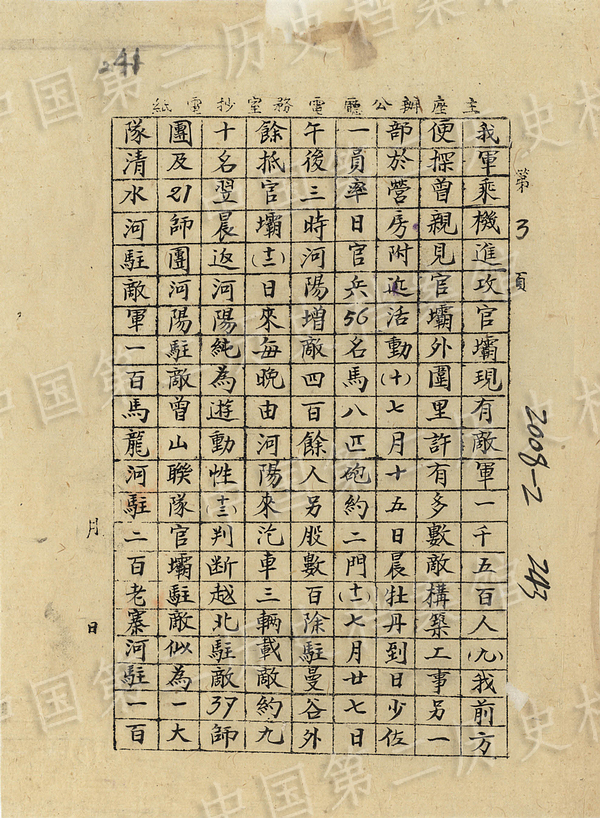 主座辦公廳電務室抄電紙
第3頁
我軍乘機進攻官壩現有敵軍一千五百人(九)我前方
便探曾親見官壩外圍里許有多數敵構築工事另一
部於營房附近活動(十)七月十五日晨牡丹到日少佐
一員率日官兵56名馬八匹砲約二門(十一)七月廿七日
午後三時河陽增敵四百餘人另股數百除駐曼谷外
餘抵官壩(十二)日來每晚由河陽來汽車三輛載敵約九
十名翌晨返河陽純為遊動性(十三)判断越北駐敵37師
團及21師團河陽駐敵曾山聯隊官壩駐敵似為一大
隊清水河駐敵軍一百馬龍河駐二百老寨河駐一百
月 日
2008-2 243
241
中国第二历史档案馆